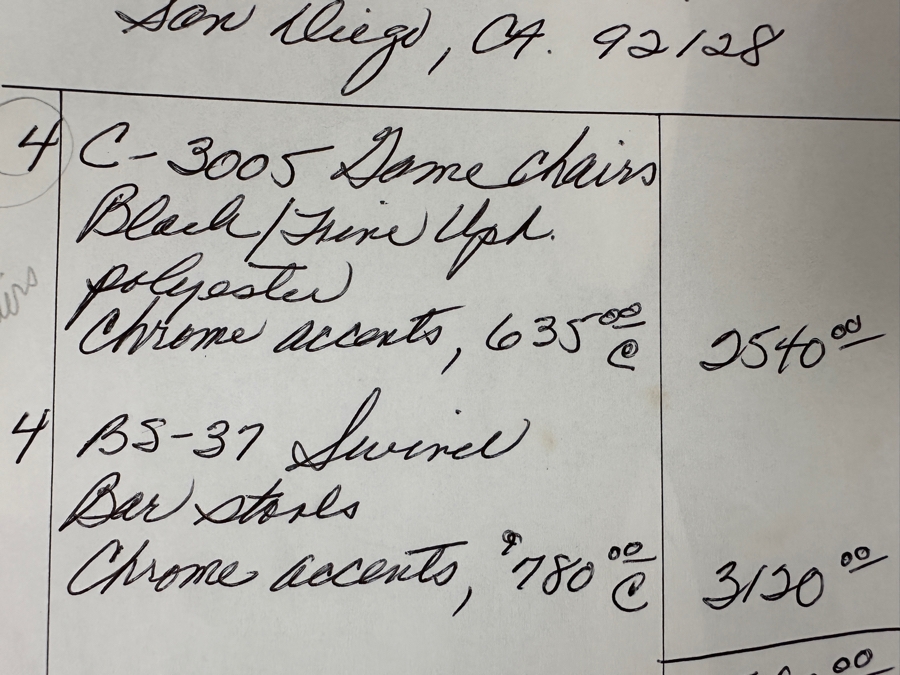 San Diego, CA. 92128
4 C-3005 Game Chairs
Black / Uph.
polyester
Chrome accents, 635.00 @ 2540.00
4 BS-37 Swivel
Bar stools
Chrome accents, $780.00 @ 3120.00
00